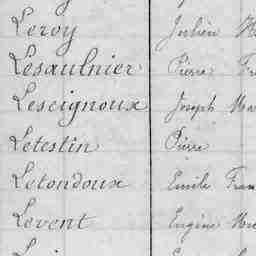 Leroy Julien
Lesaulnier Pierre Fr
Lescignoux Joseph Ma
Letestin Pierre
Letondoux Emile Fran
Levent Eugène